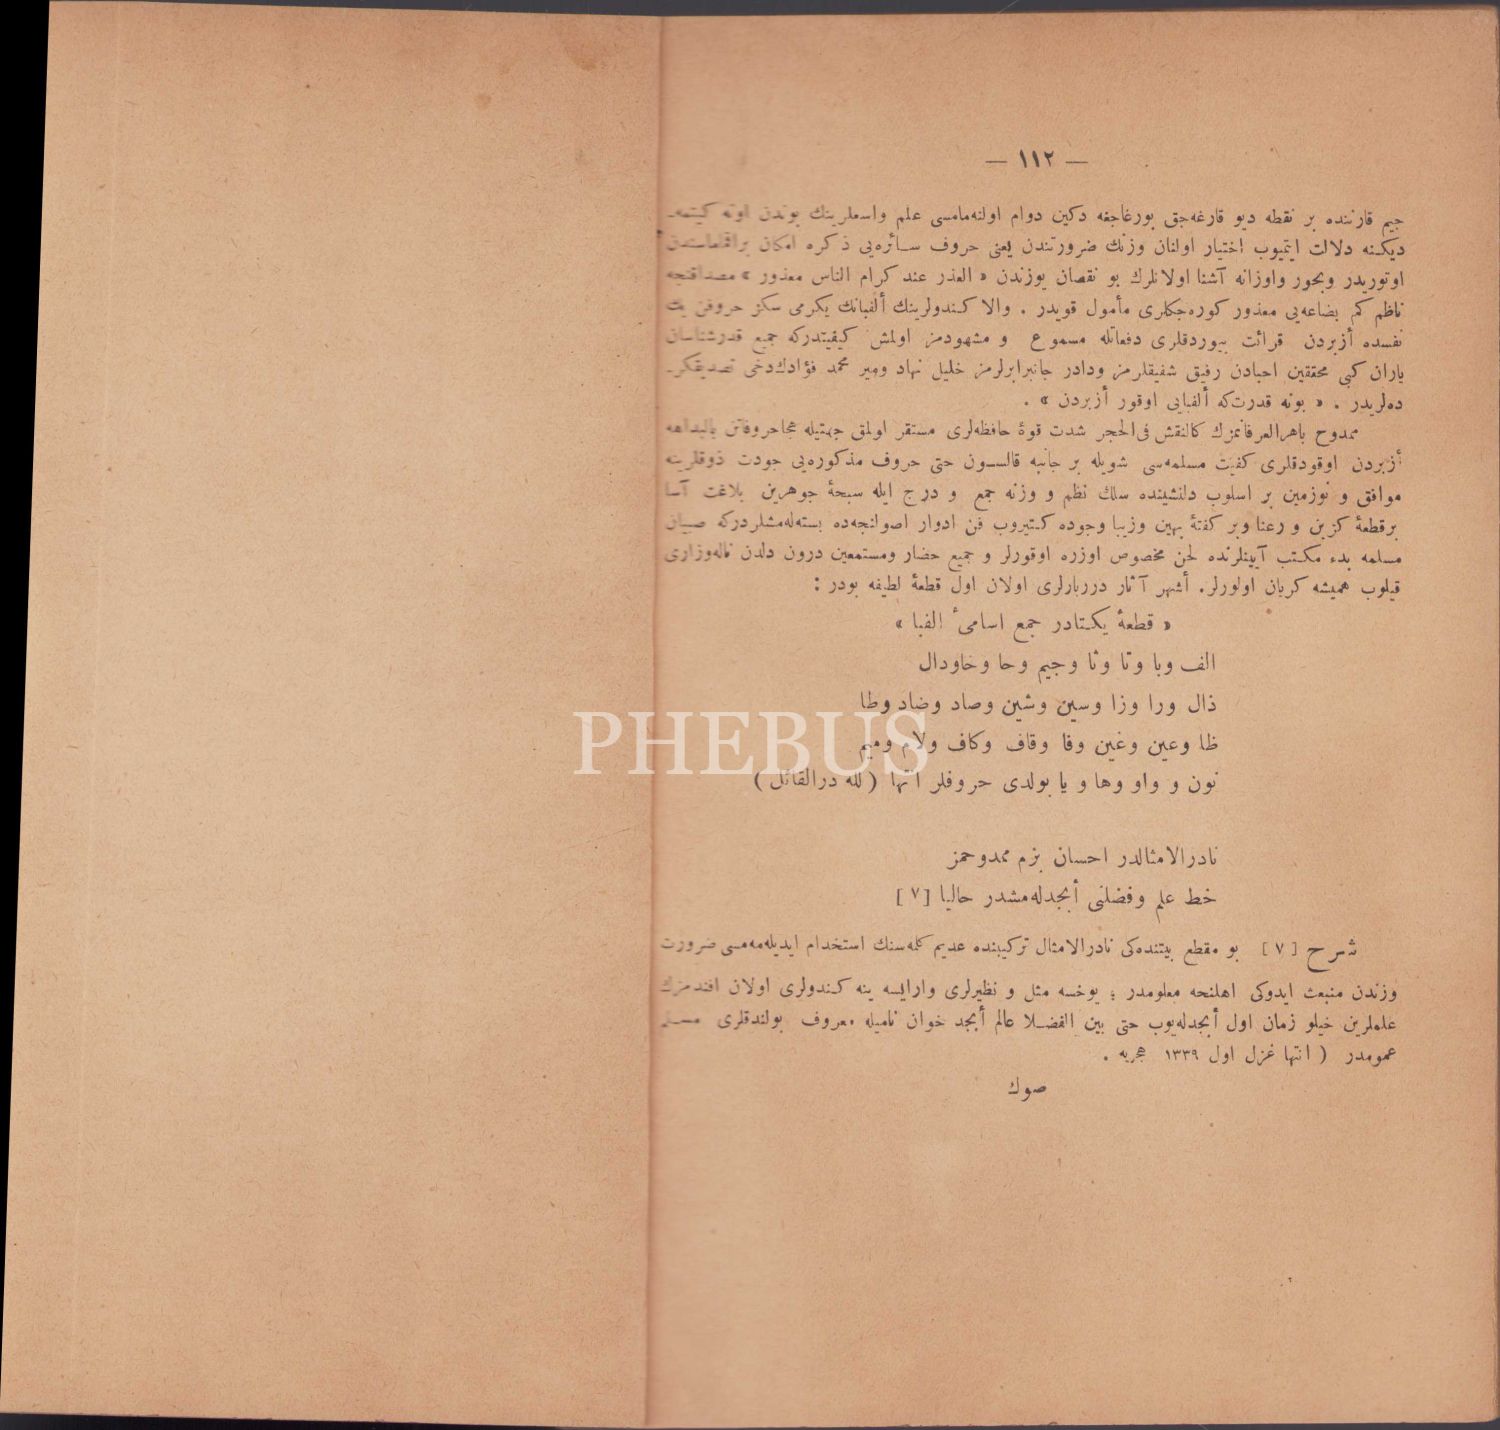 — ١١٢ —
جيم قارننده بر نقطه ديو قارغه‌جق بورغاجغه دكين دوام اولنه‌مامسى علم واسعلرينك بوندن اوته كيتمه‌ـ
ديكنه دلالت ايتميوب اختيار اولنان وزنك ضرورتندن يعنى حروف سائره‌يى ذكره امكان براقلماسندن
اوتوريدر وبحور واوزانه آشنا اولانلرك بو نقصان يوزندن « العذر عند كرام الناس معذور » مصداقنجه
ناظم كم بضاعه‌يى معذور كوره‌جكلرى مأمول قويدر . والا كندولرينك ألفبانك يكرمى سكز حروفن
نفسده أزبردن قرائت بيوردقلرى دفعاتله مسموع و مشهودمز اولمش كيفيتدركه جميع قدرشناسان
ياران كبى محققين احبادن رفيق شفيقلرمز ودادر جانبرابرلرمز خليل نهاد ومير محمد فؤادك‌دخى تصديقكر‌ـ
ده‌لريدر . « بونه قدرت‌كه ألفبايى اوقور أزبردن » .
ممدوح باهرالعرفانمزك كالنقش فى‌الحجر شدت قوهٔ حافظه‌لرى مستقر اولمق جهتيله هجاحروفاتن بالبداهه
أزبردن اوقودقلرى كفيت مسلمه‌سى شويله بر جانبه قالسون حتى حروف مذكوره‌يى جودت ذوقلرينه
موافق و نوزمين بر اسلوب دلنشينده سلك نظم و وزنه جمع و درج ايله سبحهٔ جوهرين بلاغت آسا
برقطعهٔ كزين و رعنا وبر كفتهٔ بهين وزيبا وجوده كتيروب فن ادوار اصولنجه‌ده بسته‌له‌مشلردركه صبيان
مسلمه بدء مكتب آيينلرنده لحن مخصوص اوزره اوقورلر و جميع حضار ومستمعين درون دلدن ناله‌وزارى
قيلوب هميشه كريان اولورلر. أشهر آثار درربارلرى اولان اول قطعهٔ لطيفه بودر :
« قطعهٔ يكتادر جمع اسامىٔ الفبا »
الف وبا وتا وثا وجيم وحا وخاودال
ذال ورا وزا وسين وشين وصاد وضاد وطا
ظا وعين وغين وفا وقاف وكاف ولام وميم
نون و واو وها و يا بولدى حروفلر انتها ( لله درالقائل )
نادرالامثالدر احسان بزم ممدوحمز
خط علم وفضلنى أبجدله‌مشدر حاليا [٧]
شرح [٧] بو مقطع بيتنده‌كى نادرالامثال تركيبنده عديم كلمه‌سنك استخدام ايديله‌مه‌مسى ضرورت
وزندن منبعث ايدوكى اهلنجه معلومدر ؛ يوخسه مثل و نظيرلرى وارايسه ينه كندولرى اولان افندمزك
علملرين خيلو زمان اول أبجدله‌يوب حتى بين الفضلا عالم أبجد خوان ناميله معروف بولندقلرى مسلم
عمومدر ( انتها غزل اول ١٣٣٩ هجريه .
صوك
PHEBUS